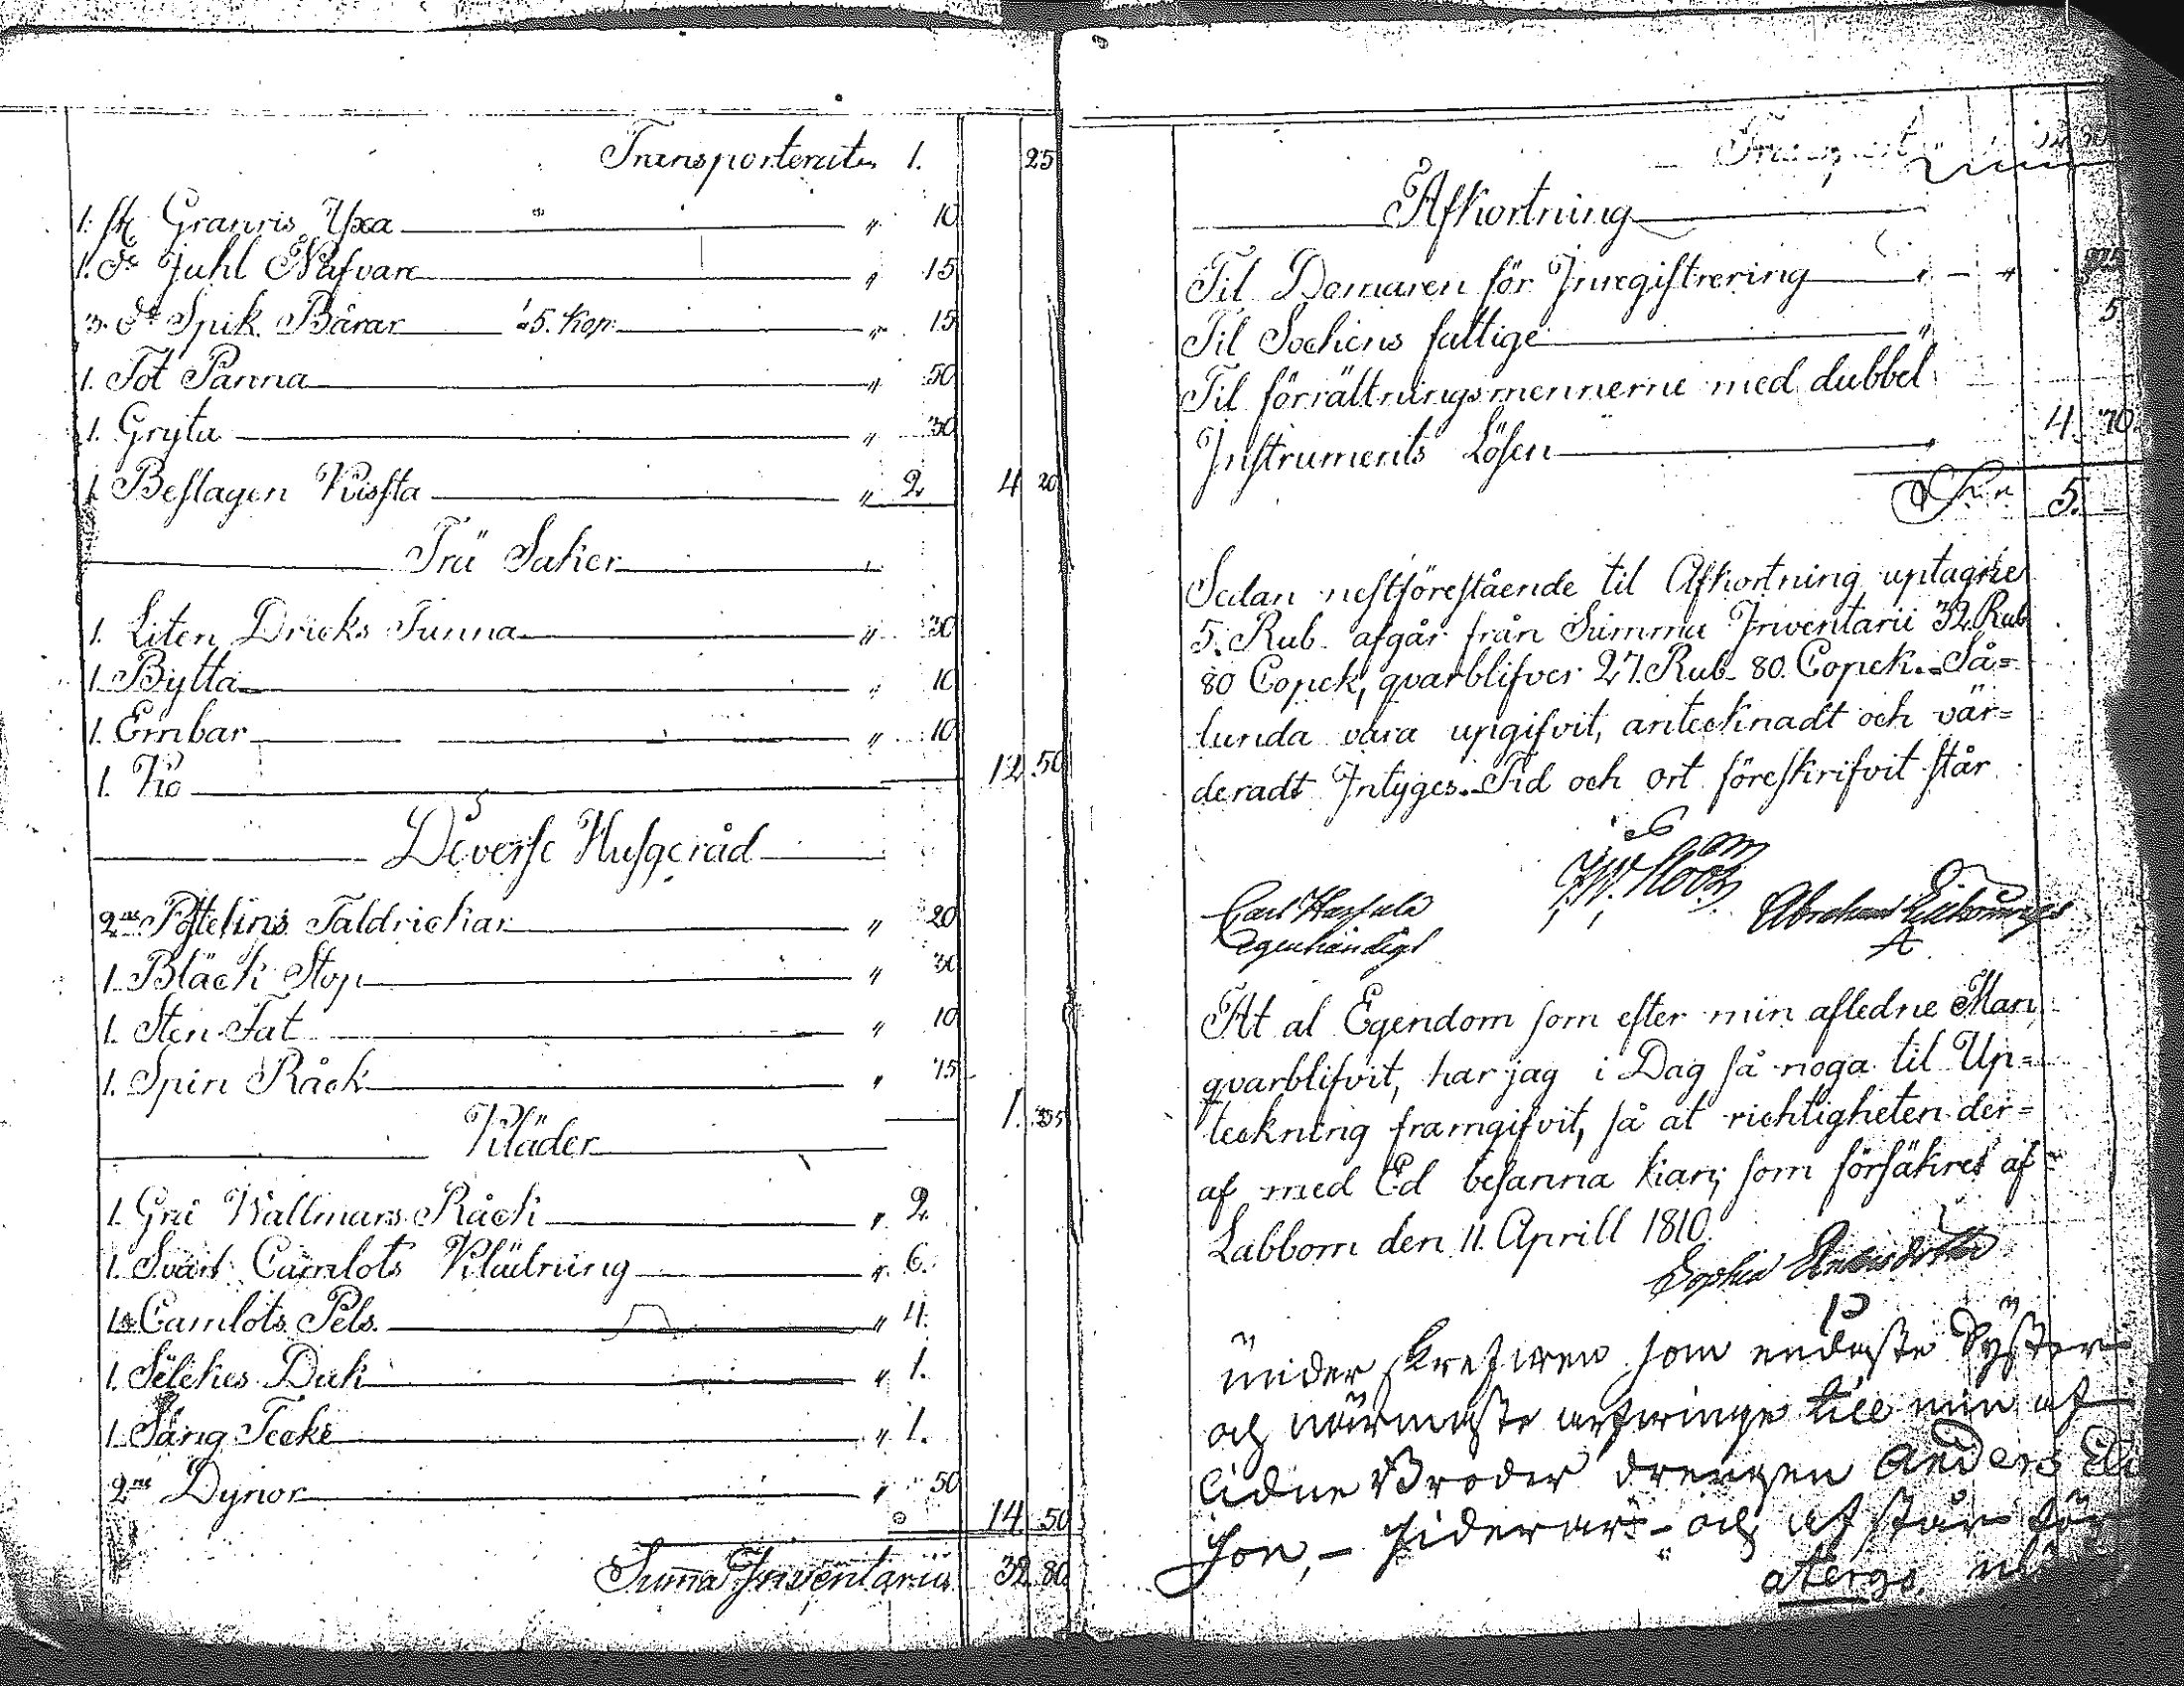 Transporterat 1. 25
1. st Granris Yxa " 10
1. do Juhl Nafvare " 15
3. do Spik Bårar à 5. Kop. " 15
1. Fot Panna " 50
1. Gryta " 30
1. Beslagen Kissta " 2. 4 20
Trä Saker
1. Liten Dricks Tunna " 30
1. Bytta " 10
1. Embar " 10
1. Ko 12 50
Diverse Husgeråd
2ne Postelins Taldrickar " 20
1. Bläck Stop " 30
1. Sten Fat " 10
1. Spin Råck " 75
1. 35
Kläder
1. Grå Wallmars Råck " 2.
1. Svart Camlots Klädning " 6.
1. Camlots Pels " 4.
1. Silckes Duk " 1.
1. Säng Tecke " 1.
2ne Dynor " 50
14 50
Summa Inventarii 32 80
Transport 32 80
Afkortning
Til Domaren för Inregistrering " 25
Til Sockens fattige " 5
Til förrättningsmennerne med dubbel
Instruments Lösen " 4. 70.
5. -
Sedan nestförestående til Afkortning uptagne
5. Rub. afgår från Summa Inventarii 32. Rub
80 Copek, qvarblifver 27. Rub. 80. Copek. Så=
lunda vara upgifvit, antecknadt och vär=
deradt Intyges. Tid och ort föreskrifvit står
Carl
Egenhändigt
Abraham
At al Egendom som efter min afledne Man
qvarblifvit, har jag i Dag så noga til Up=
teckning framgifvit, så at richtigheten der=
af med Ed besanna kan; som försäkret af
Labbom den 11. Aprill 1810.
Sophia Andersdotter
under skrefwen som endaste Syster
och närmaste arfwinge till min af
lidne Broder drengen Anders
son, - - och af står för
atergo.